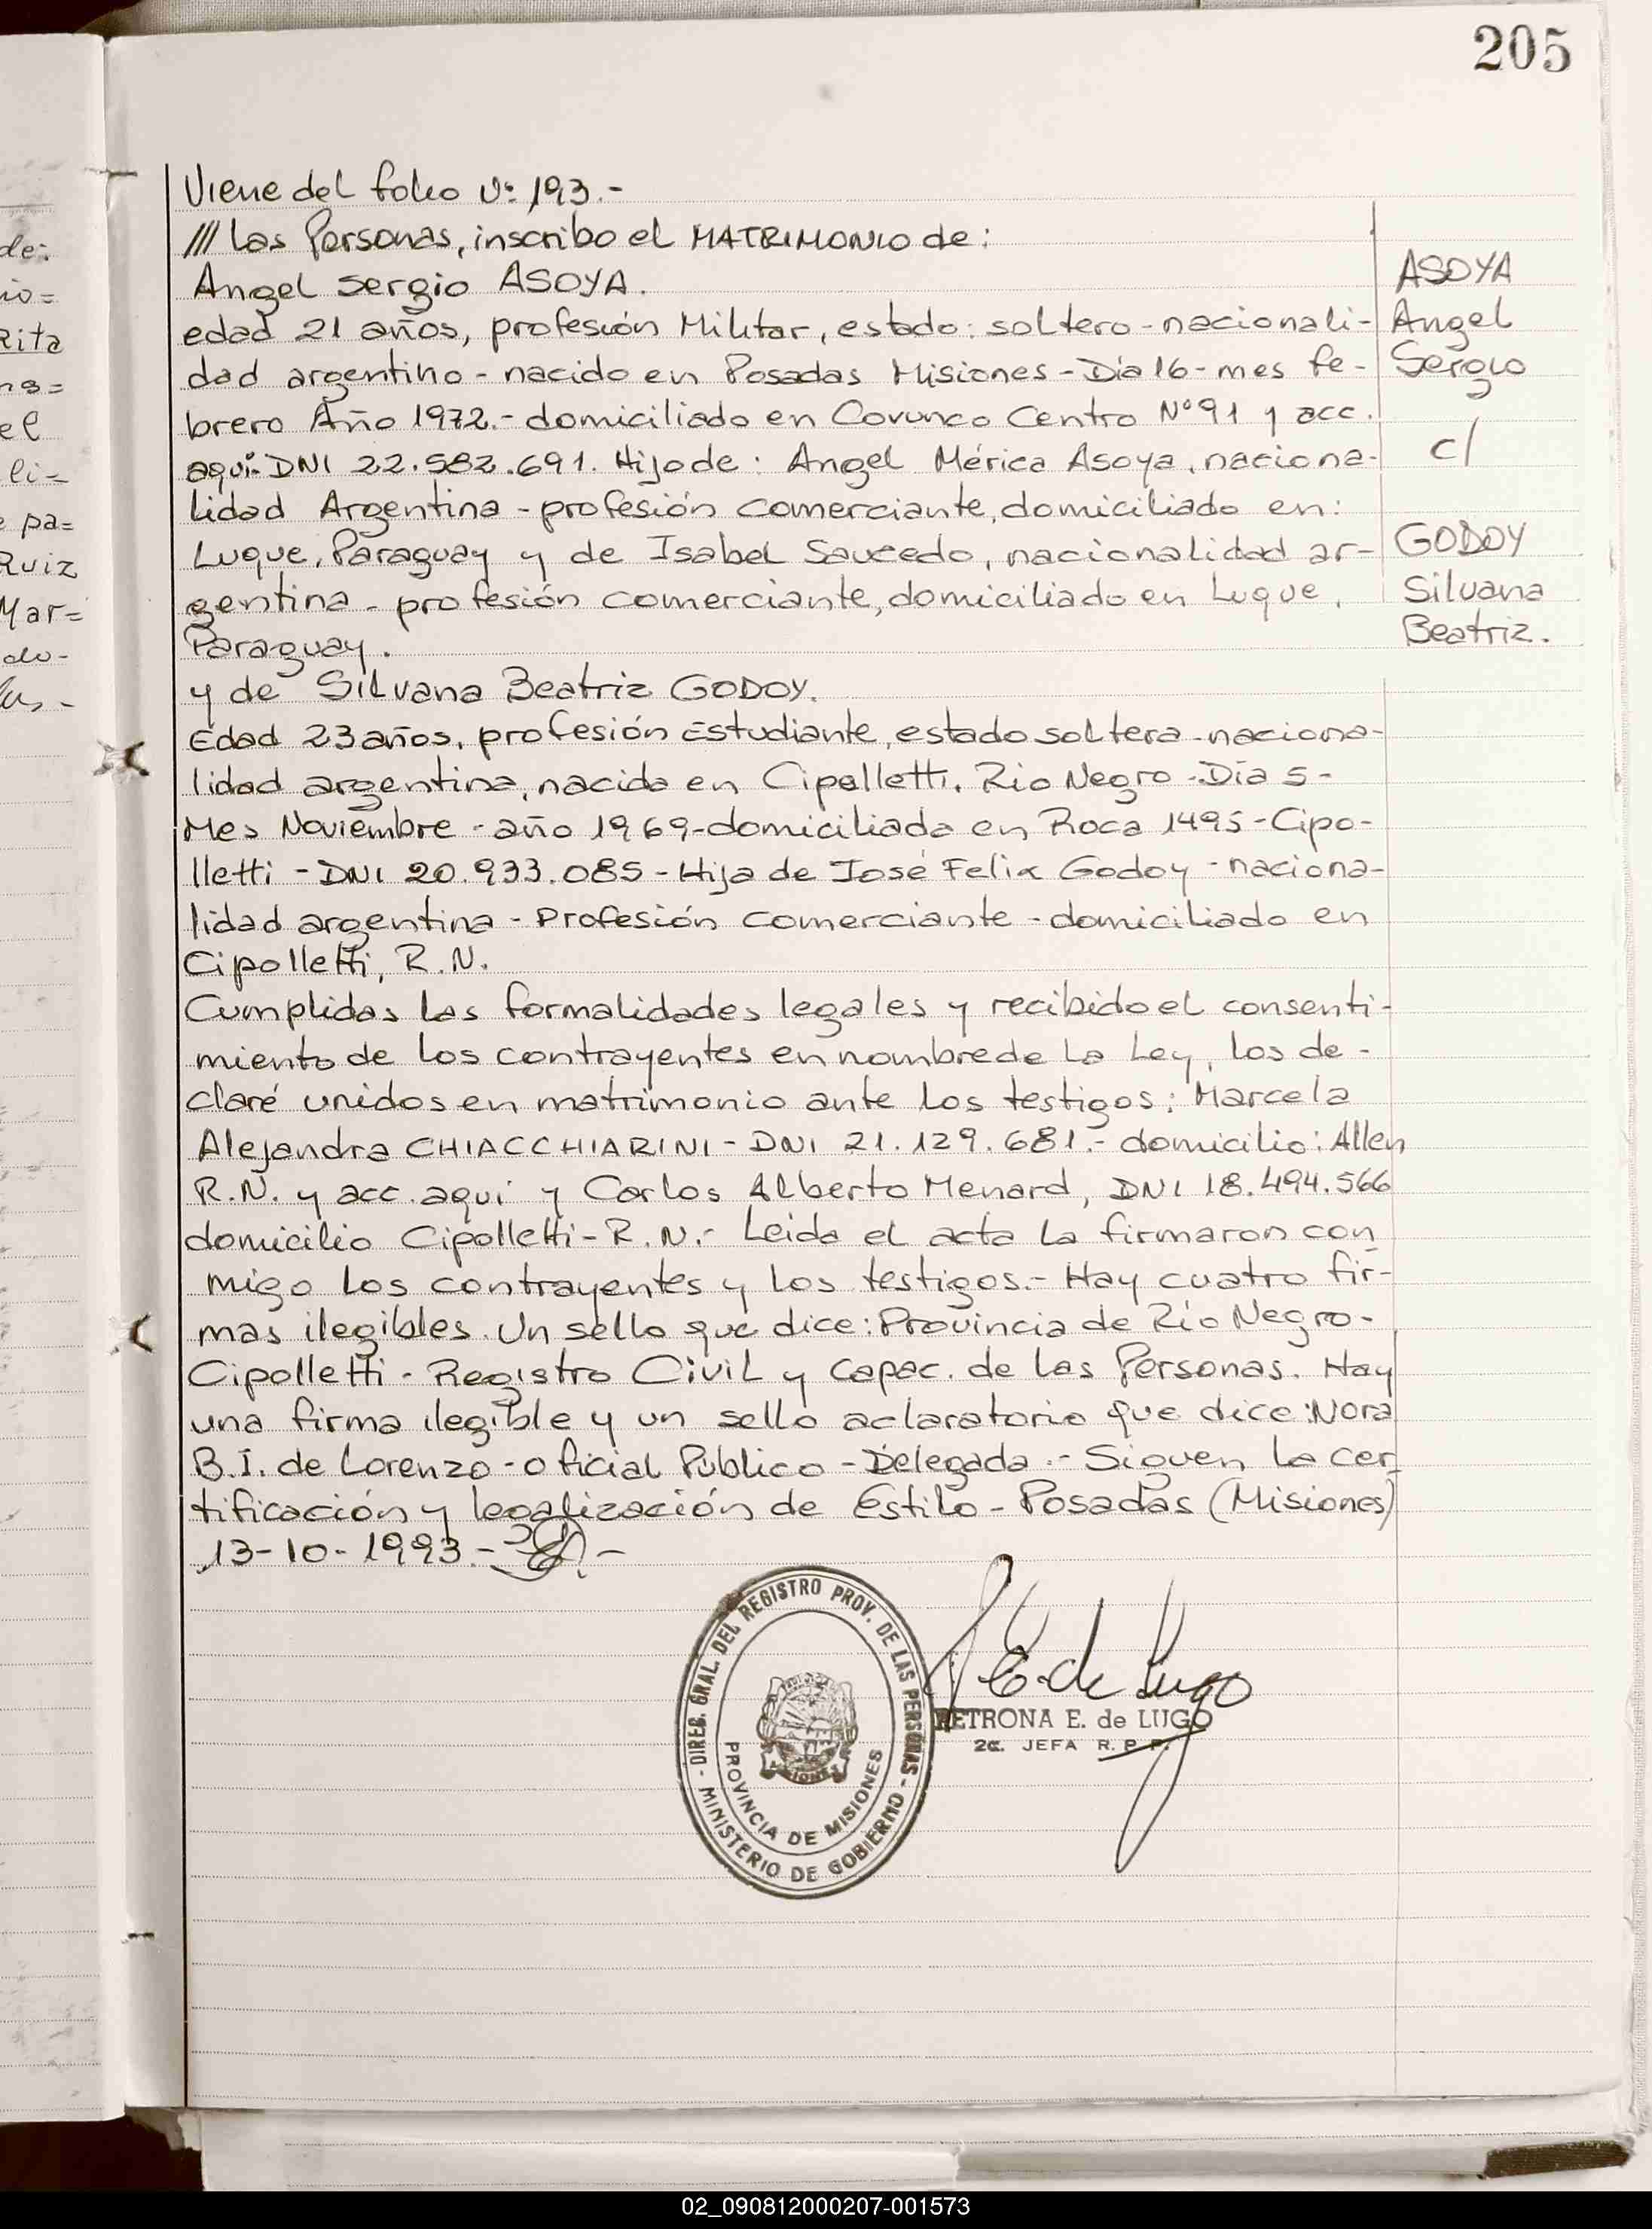 205
Viene del folio Nº 193.-
/// Las Personas, inscribo el MATRIMONIO de:
Angel Sergio ASOYA.
edad 21 años, profesión Militar, estado: soltero - nacionali-
dad argentino - nacido en Posadas Misiones - Día 16 - mes fe-
brero Año 1972.- domiciliado en Covunco Centro Nº 91 y acc.
aquí- DNI 22.582.691. Hijo de: Angel Mérica Asoya, naciona-
lidad Argentina - profesión comerciante, domiciliado en:
Luque, Paraguay y de Isabel Saucedo, nacionalidad ar-
gentina - profesión comerciante, domiciliado en Luque,
Paraguay.
y de Silvana Beatriz GODOY.
Edad 23 años, profesión Estudiante, estado soltera - naciona-
lidad argentina, nacida en Cipolletti, Rio Negro - Día 5 -
Mes Noviembre - año 1969 - domiciliada en Roca 1495 - Cipo-
lletti - DNI 20.933.085 - Hija de José Felix Godoy - naciona-
lidad argentina - Profesión comerciante - domiciliado en
Cipolletti, R.N.
Cumplidas las formalidades legales y recibido el consenti-
miento de los contrayentes en nombre de la Ley, los de-
claré unidos en matrimonio ante los testigos: Marcela
Alejandra CHIACCHIARINI - DNI 21.129.681.- domicilio: Allen
R.N. y acc. aquí y Carlos Alberto Menard, DNI 18.494.566
domicilio Cipolletti - R.N.- Leida el acta la firmaron con
migo los contrayentes y los testigos.- Hay cuatro fir-
mas ilegibles. Un sello que dice: Provincia de Río Negro-
Cipolletti - Registro Civil y Capac. de las Personas. Hay
una firma ilegible y un sello aclaratorio que dice: Nora
B.I. de Lorenzo - Oficial Público - Delegada.- Siguen la cer
tificación y legalización de Estilo - Posadas (Misiones)
13-10-1993.-
ASOYA
Angel
Sergio
c/
GODOY
Silvana
Beatriz.
- DIREC. GRAL. DEL REGISTRO PROV. DE LAS PERSONAS -
MINISTERIO DE GOBIERNO
PROVINCIA DE MISIONES
P. E. de Lugo
PETRONA E. de LUGO
2a. JEFA R. P. P.
de:
io=
Rita
ns=
el
li=
pa=
Ruiz
Mar=
do-
02_090812000207-001573